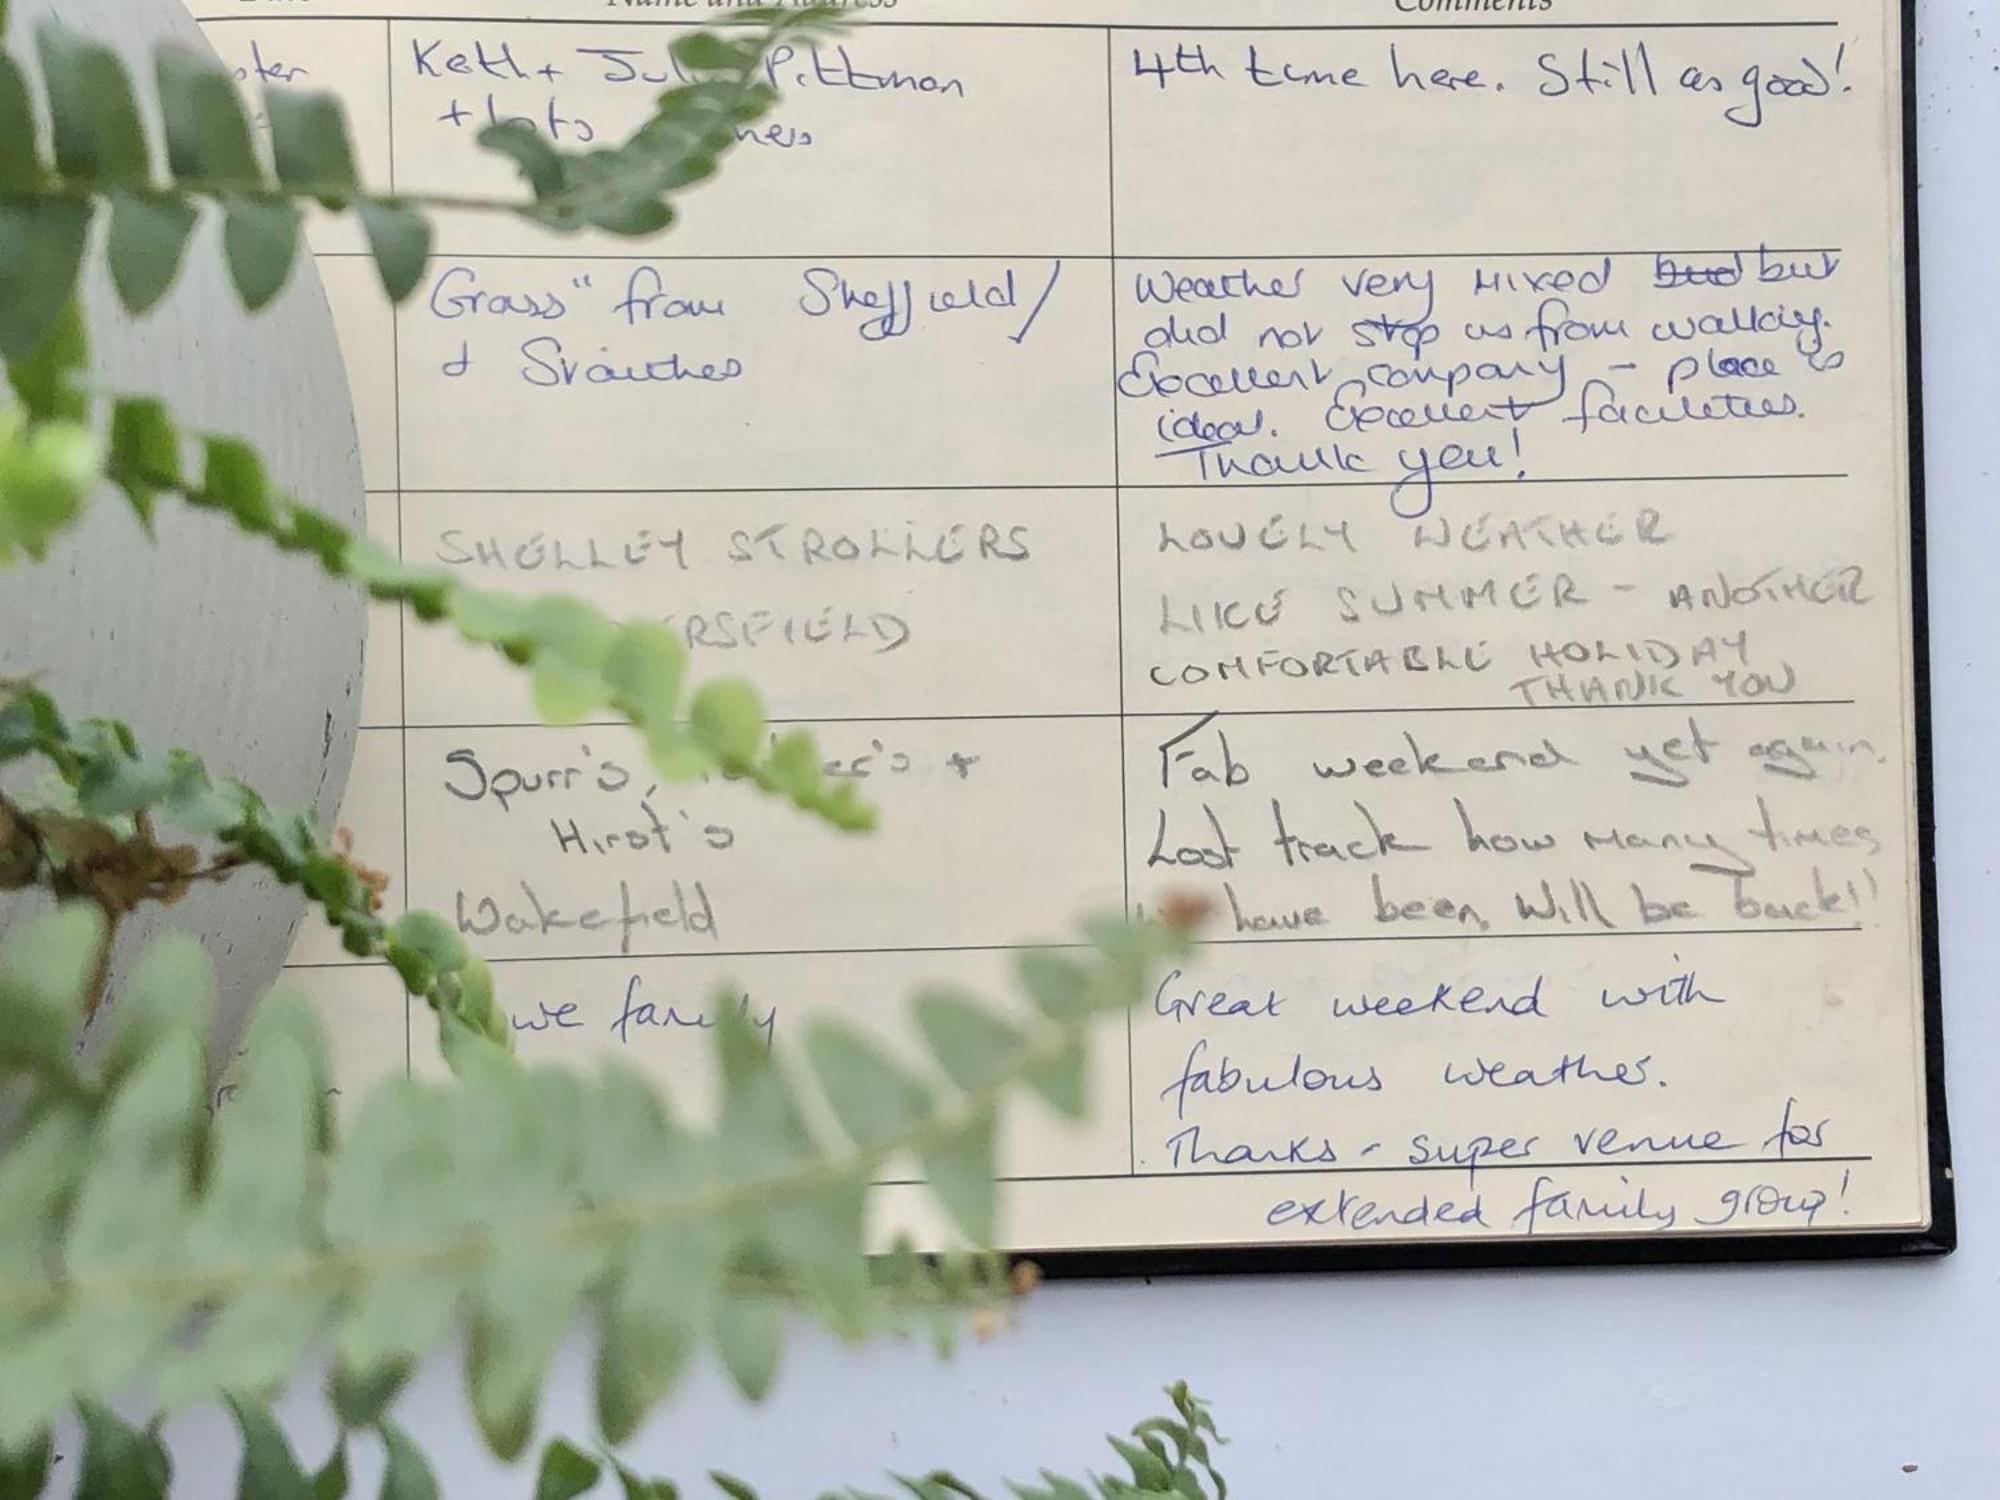 Comments
Keth + Pittman
+ lots
4th time here. Still as good!
Grass" from Sheffield/
+
Weather very mixed but
did not stop us from walking.
Excellent company - place is
ideal. Excellent facilities.
Thank you!
SHELLEY STROLLERS
LOVELY WEATHER
LIKE SUMMER - ANOTHER
COMFORTABLE HOLIDAY
THANK YOU
Spurr's, +
Hirst's
Wakefield
Fab weekend yet again.
Lost track how many times
have been. Will be back!!
family
Great weekend with
fabulous weather.
Thanks - super venue for
extended family group!